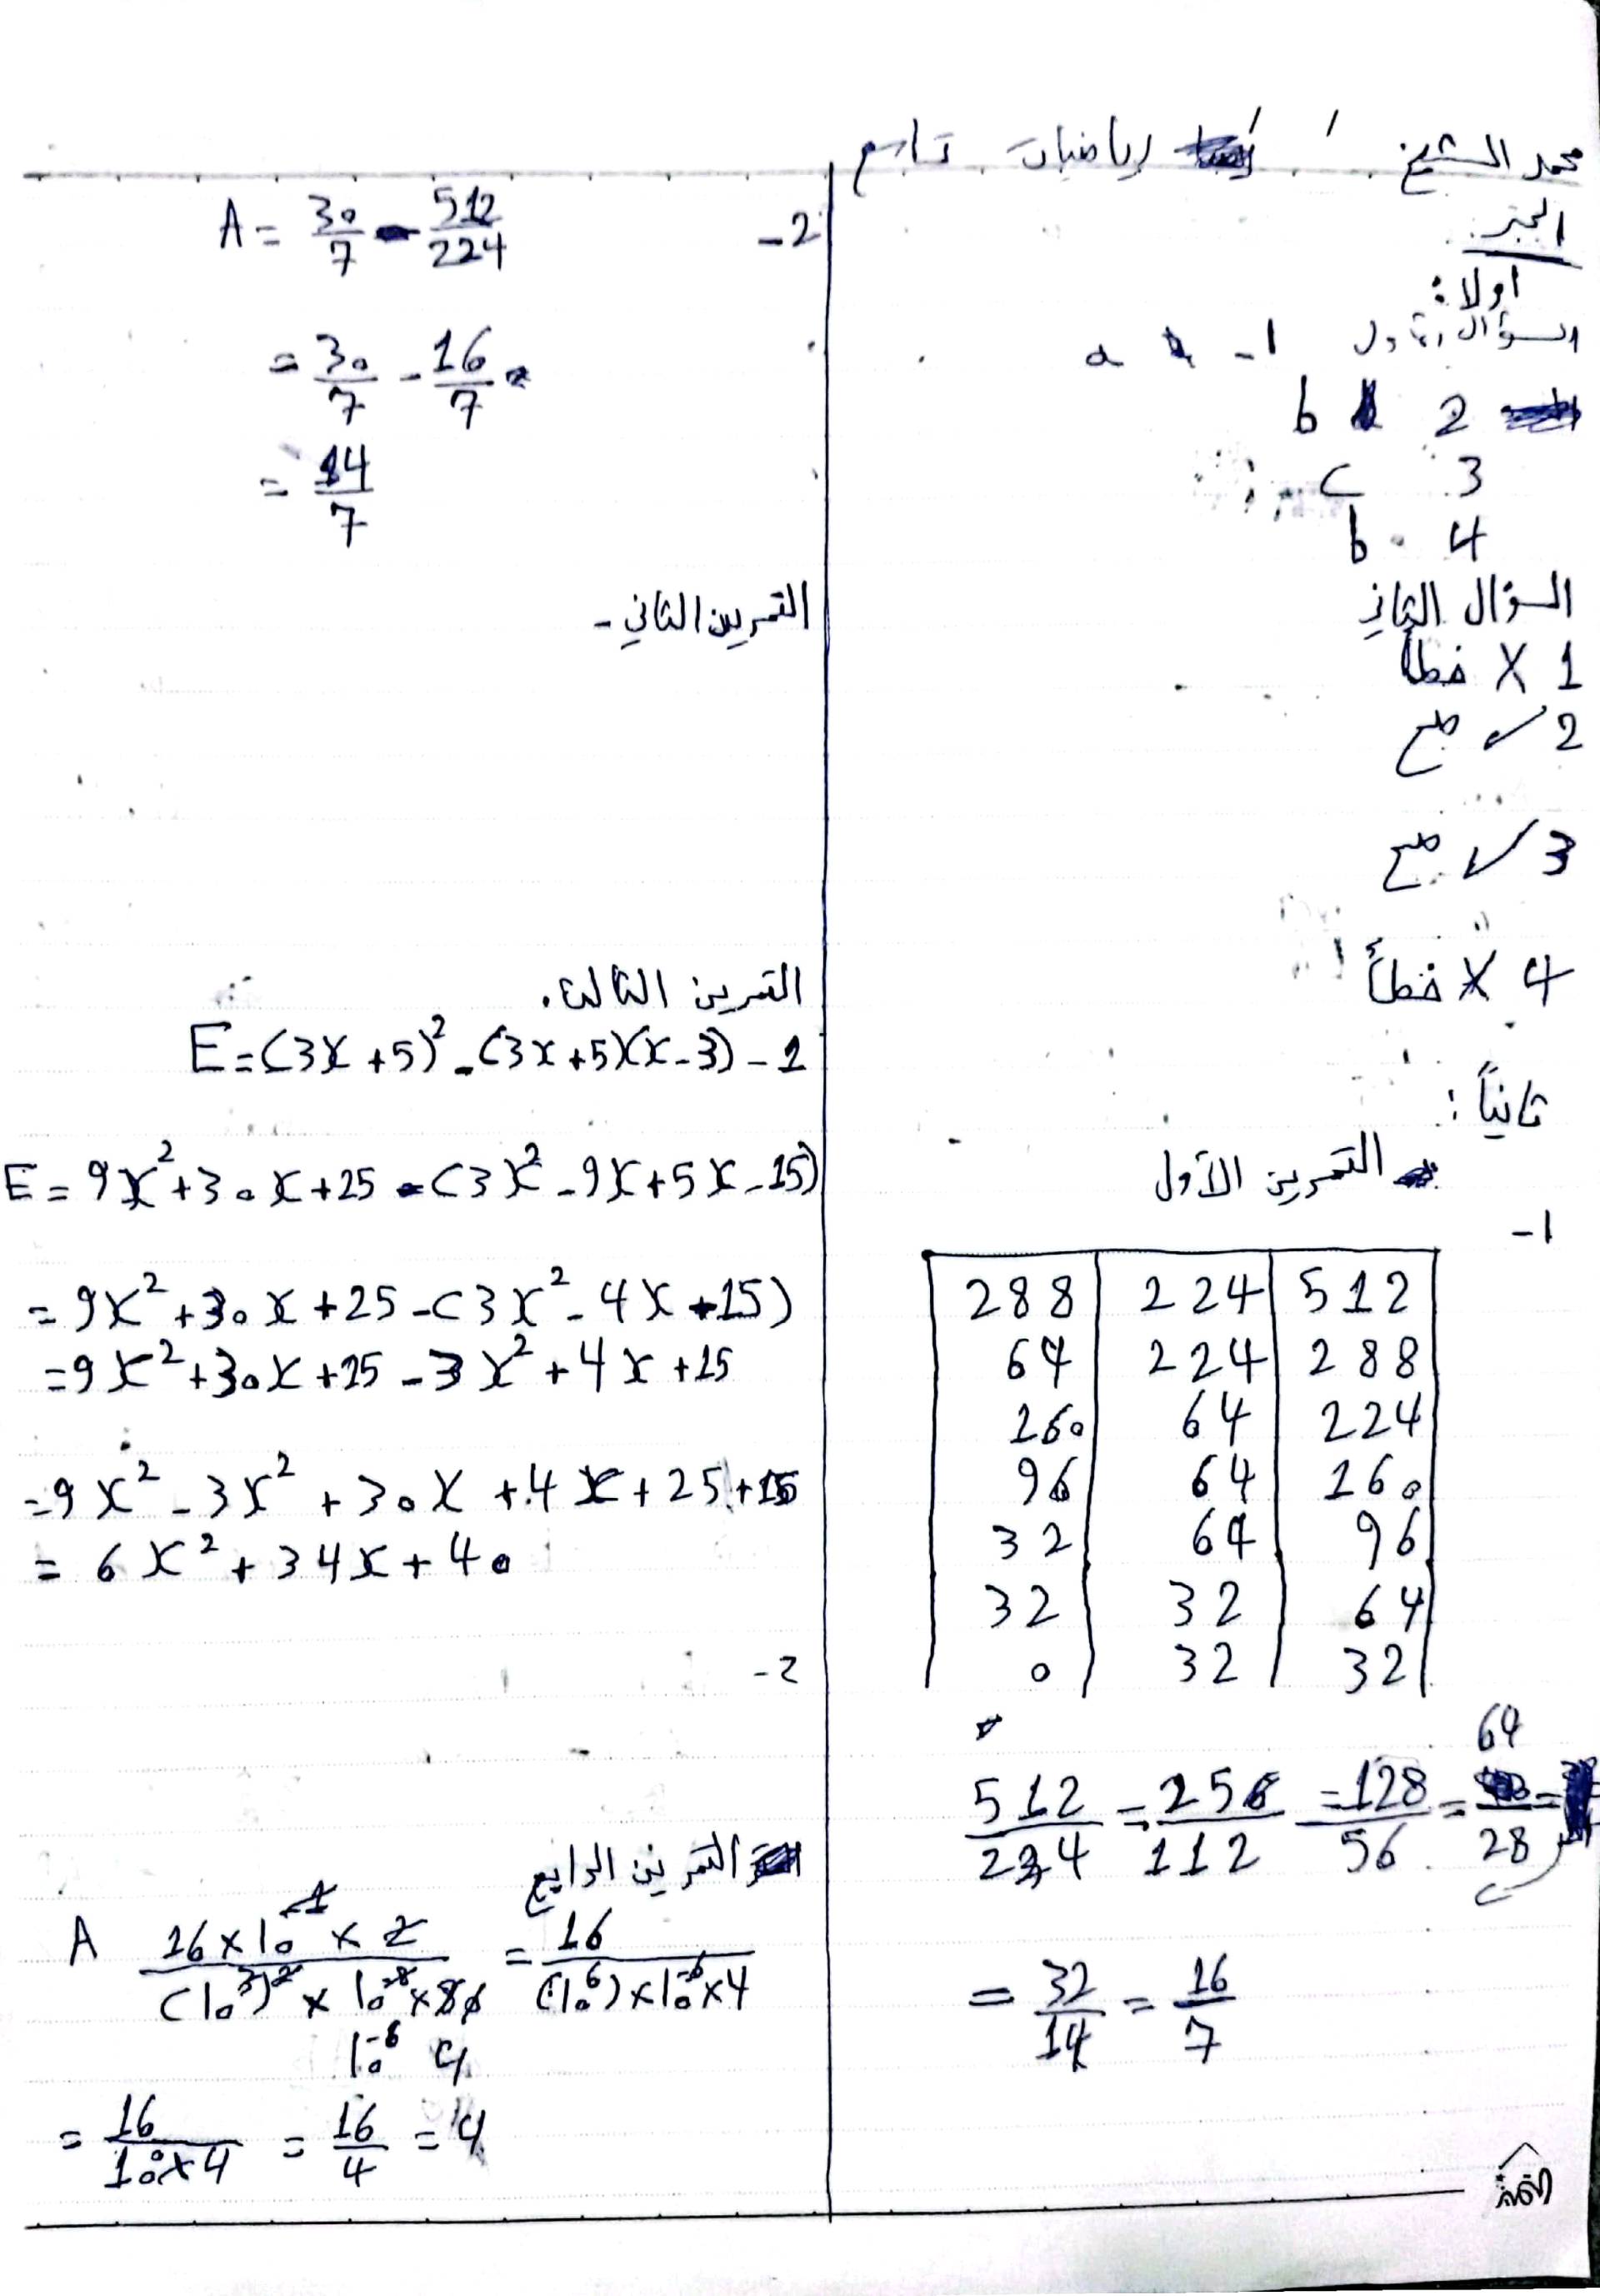 محمد الشيخ رياضيات تاسع
الجبر
اولا:
السؤال الأول 1- a
2 b
3 c
4 b
السؤال الثاني
1 X خطأ
2 ✓ صح
3 ✓ صح
4 X خطأ
ثانياً:
التمرين الأول
1-
288 | 224 | 512
64 | 224 | 288
160 | 64 | 224
96 | 64 | 160
32 | 64 | 96
32 | 32 | 64
0 | 32 | 32
512/224 = 256/112 = 128/56 = 64/28
= 32/14 = 16/7
2- A = 30/7 - 512/224
= 30/7 - 16/7
= 14/7
التمرين الثاني -
التمرين الثالث.
E = (3x + 5)² - (3x + 5)(x - 3) - 1
E = 9x² + 30x + 25 - (3x² - 9x + 5x - 15)
= 9x² + 30x + 25 - (3x² - 4x - 15)
= 9x² + 30x + 25 - 3x² + 4x + 15
= 9x² - 3x² + 30x + 4x + 25 + 15
= 6x² + 34x + 40
2-
التمرين الرابع
A 16 × 10⁻¹ × 2 / (10³)² × 10⁻⁸ × 80 = 16 / (10⁶) × 10⁻⁶ × 4
10⁻⁶ 4
= 16 / 10⁰ × 4 = 16/4 = 4